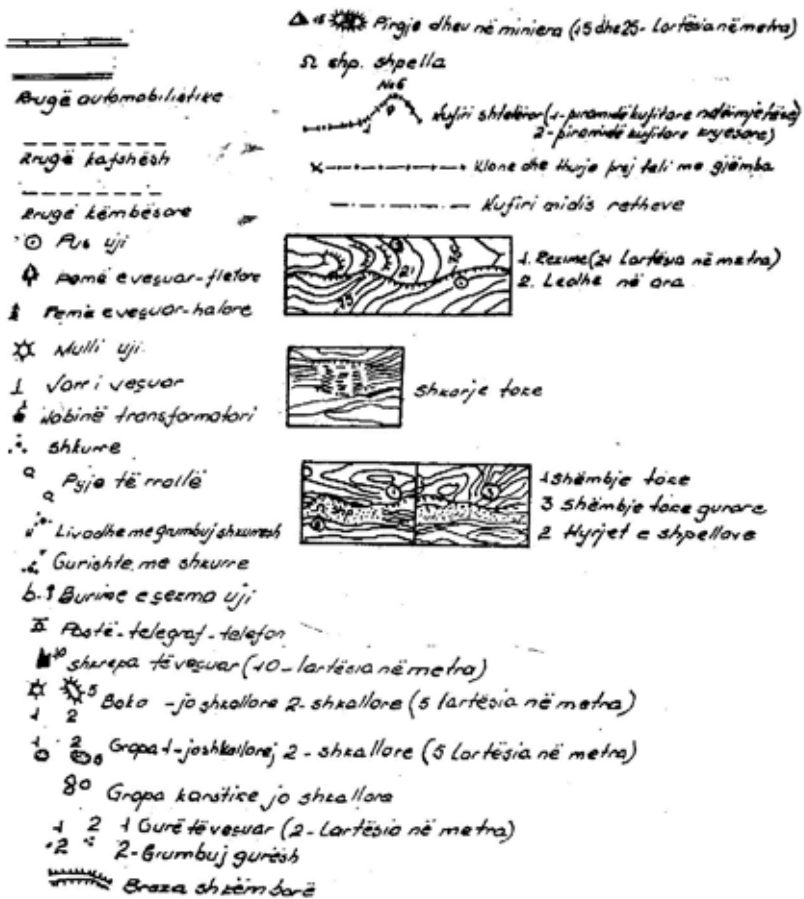 Rrugë automobilistike
Rrugë kafshësh
Rrugë këmbësore
Pus uji
Pemë e veçuar-fletore
Pemë e veçuar-halore
Mulli uji
Varr i veçuar
Kabinë transformatori
Shkurre
Pyje të rrallë
Livadhe me grumbuj shkurresh
Gurishte me shkurre
b. Burime e çezma uji
Postë-telegraf-telefon
10 Shkrepa të veçuar (10-lartësia në metra)
5
1 2 Boko - jo shkallore 2-shkallore (5 lartësia në metra)
1 2 5 Gropa 1-joshkallorej 2-shkallore (5 Lartësia në metra)
Gropa karstike jo shkallore
1 2 1 Gurë të veçuar (2-Lartësia në metra)
2 2-Grumbuj gurësh
Braza shkëmborë
15 Pirgje dheu në miniera (15 dhe 25-Lartësia në metra)
shp. shpella
No 6
Kufiri shtetëror (1-piramidë kufitare ndërmjetëse)
2-piramidë kufitare kryesore)
Klone dhe thurje prej teli me gjëmba
Kufiri midis retheve
21
75
1. Rezime (21 Lartësia në metra)
2. Ledhe në ara
Shkarje toke
1 Shëmbje toke
3 Shëmbje toke gurore
2 Hyrjet e shpellave